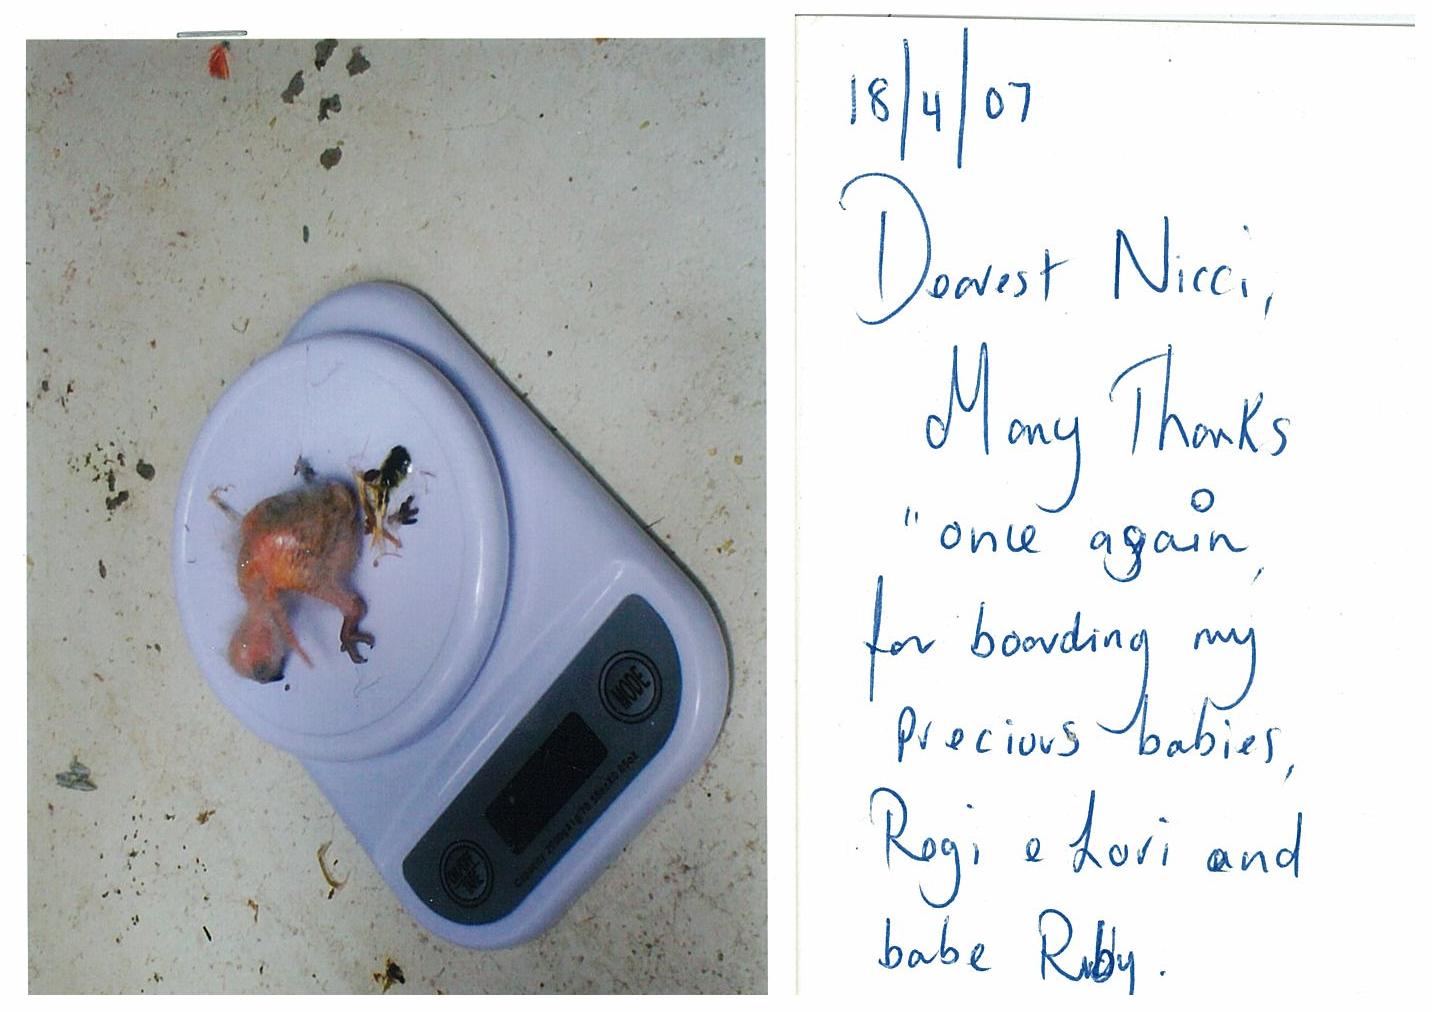 MODE
18/4/07
Dearest Nicci,
Many Thanks
"once again,
for boarding my
precious babies,
Rogi e Lori and
babe Ruby.